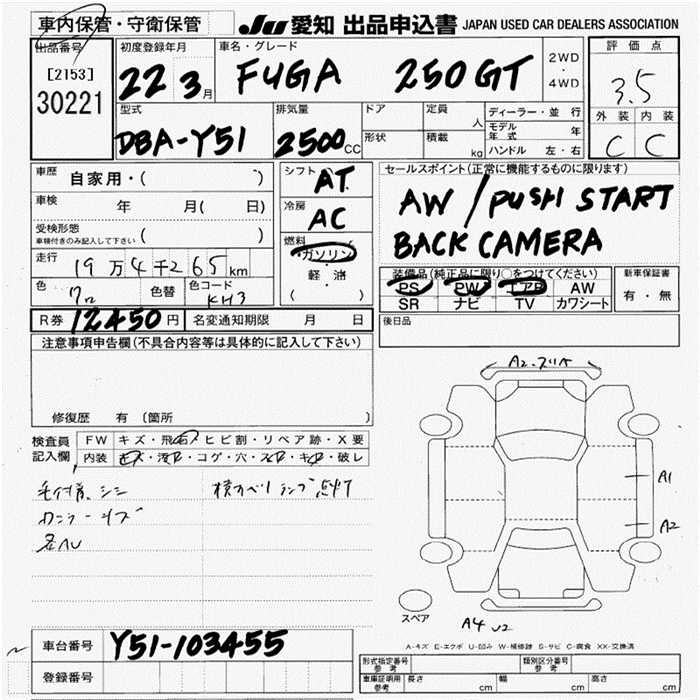 車内保管・守衛保管
JU 愛知 出品申込書 JAPAN USED CAR DEALERS ASSOCIATION
出品番号
[2153]
30221
初度登録年月
22 3月
車名・グレード
FUGA 250GT
2WD
・
4WD
評価点
3.5
外装 内装
C C
型式
DBA-Y51
排気量
2500cc
ドア
形状
定員 人
積載 kg
ディーラー・並行
モデル年式 年
ハンドル 左・右
車歴 自家用・( )
車検 年 月( 日)
受検形態
車検付きのみ記入して下さい ( )
走行 19万4千265km
色 クロ 色替 色コード KH3
シフト AT
冷房 AC
燃料
ガソリン
・
軽油
( )
セールスポイント(正常に機能するものに限ります)
AW / PUSH START
BACK CAMERA
装備品(純正品に限り○をつけてください)
PS PW エアB AW
SR ナビ TV カワシート
新車保証書
有・無
R券 12450円 名変通知期限 月 日
後日品
注意事項申告欄(不具合内容等は具体的に記入して下さい)
修復歴 有 〔箇所
検査員
記入欄
FW キズ・飛石・ヒビ割・リペア跡・X要
内装 キズ・汚れ・コゲ・穴・スレ・キレ・破レ
横スベリ ランプ 点灯
A2
A1
A2
A4 U2
スペア
A-キズ E-エクボ U-凹み W-補修跡 S-サビ C-腐食 XX-交換済
車台番号 Y51-103455
登録番号
形式指定番号 参考
類別区分番号 参考
車庫証明用 参考 長さ cm 幅 cm 高さ cm